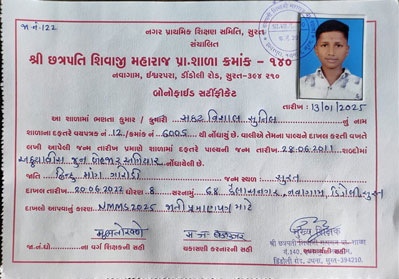 જા.નં.122
નગર પ્રાથમિક શિક્ષણ સમિતિ, સુરત
સંચાલિત
શ્રી છત્રપતિ શિવાજી મહારાજ પ્રા.શાળા ક્રમાંક - ૧૪૦
નવાગામ, ઈશ્વરપરા, ડીંડોલી રોડ, સુરત-૩૯૪ ૨૧૦
બોનોફાઇડ સર્ટીફીકેટ
તારીખ : 13/01/2025
આ શાળામાં ભણતા કુમાર / કુમારી વિશાલ સુનિલ નું નામ
શાળાના દફતર વયપત્રક નં. 12 / ક્રમાંક 6005 થી નોંધાયું છે. વાલીએ તેમના પાલ્યને દાખલ કરતી વખતે
લખી આપેલી જન્મ તારીખ પ્રમાણે શાળાના દફતરે પાલ્યની જન્મ તારીખ 28.06.2011 શબ્દોમાં
અઠ્ઠાવીસ જુન બે હજાર અગિયાર નોંધાયેલી છે.
જાતિ હિન્દુ જન્મ સ્થળ : સુરત
દાખલ તારીખ 20.06.2022 ધોરણ 8 સરનામું 64 કૈલાસનગર, નવાગામ ડિંડોલી સુરત
દાખલો આપવાનું કારણ NMMS 2025 જાતી પ્રમાણપત્ર માટે
જ.નં.ધો. ના વર્ગ શિક્ષકની સહી
ચકાસણી કરનારની સહી
મુખ્ય શિક્ષક
શ્રી છત્રપતિ શિવાજી મહારાજ પ્રા.શાળા
ડિંડોલી રોડ, ઉધના, સુરત-394210.